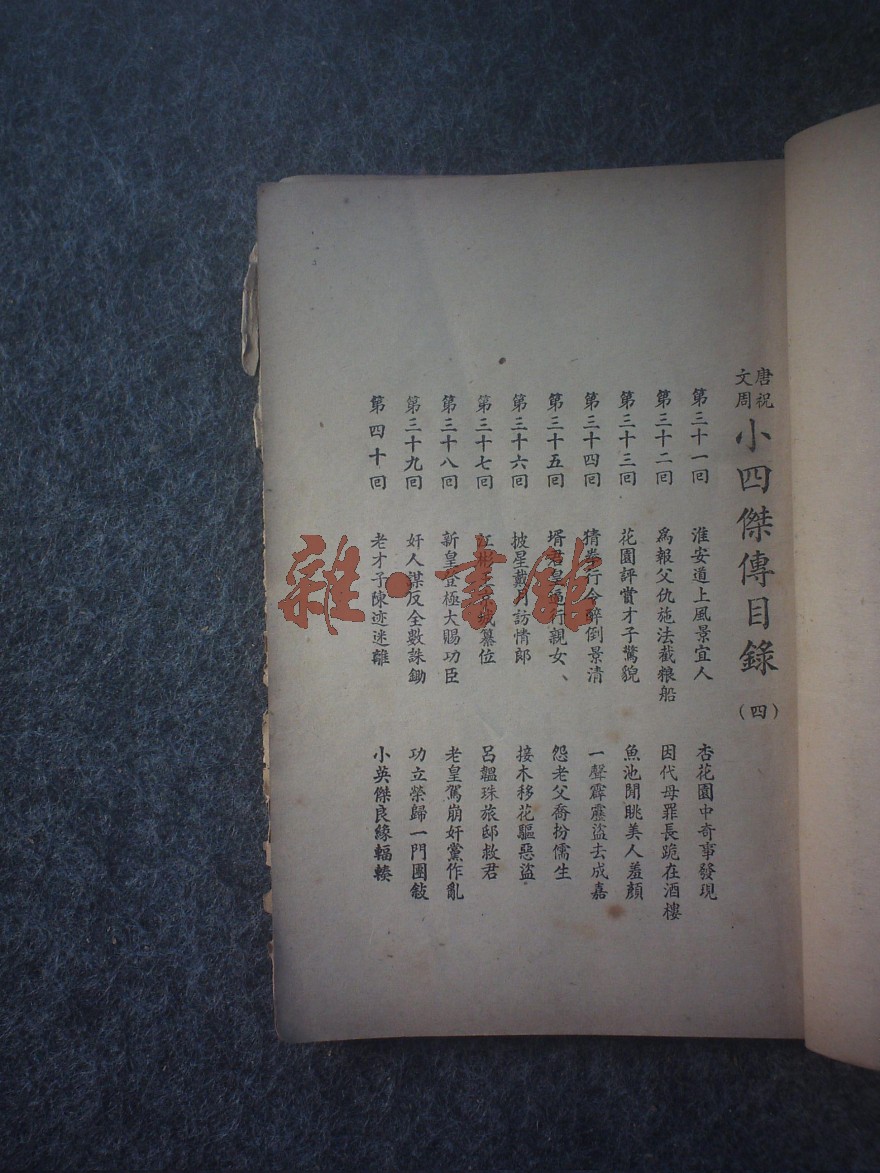 唐祝文周 小四傑傳目錄 (四)
第三十一回 淮安道上風景宜人 杏花園中奇事發現
第三十二回 爲報父仇施法截粮船 因代母罪長跪在酒樓
第三十三回 花園評賞才子驚貌 魚池閒眺美人羞顏
第三十四回 猜拳行令醉倒景清 一聲霹靂盜去成嘉
第三十五回 壻君皇 行親女、 怨老父喬扮儒生
第三十六回 披星戴月訪情郎 接木移花驅惡盜
第三十七回 江彬 篡位 呂韞珠旅邸救君
第三十八回 新皇登極大賜功臣 老皇駕崩奸黨作亂
第三十九回 奸人謀反全數誅鋤 功立榮歸一門團敍
第四十回 老才子陳迹迷離 小英傑良緣輻輳
雜·書館